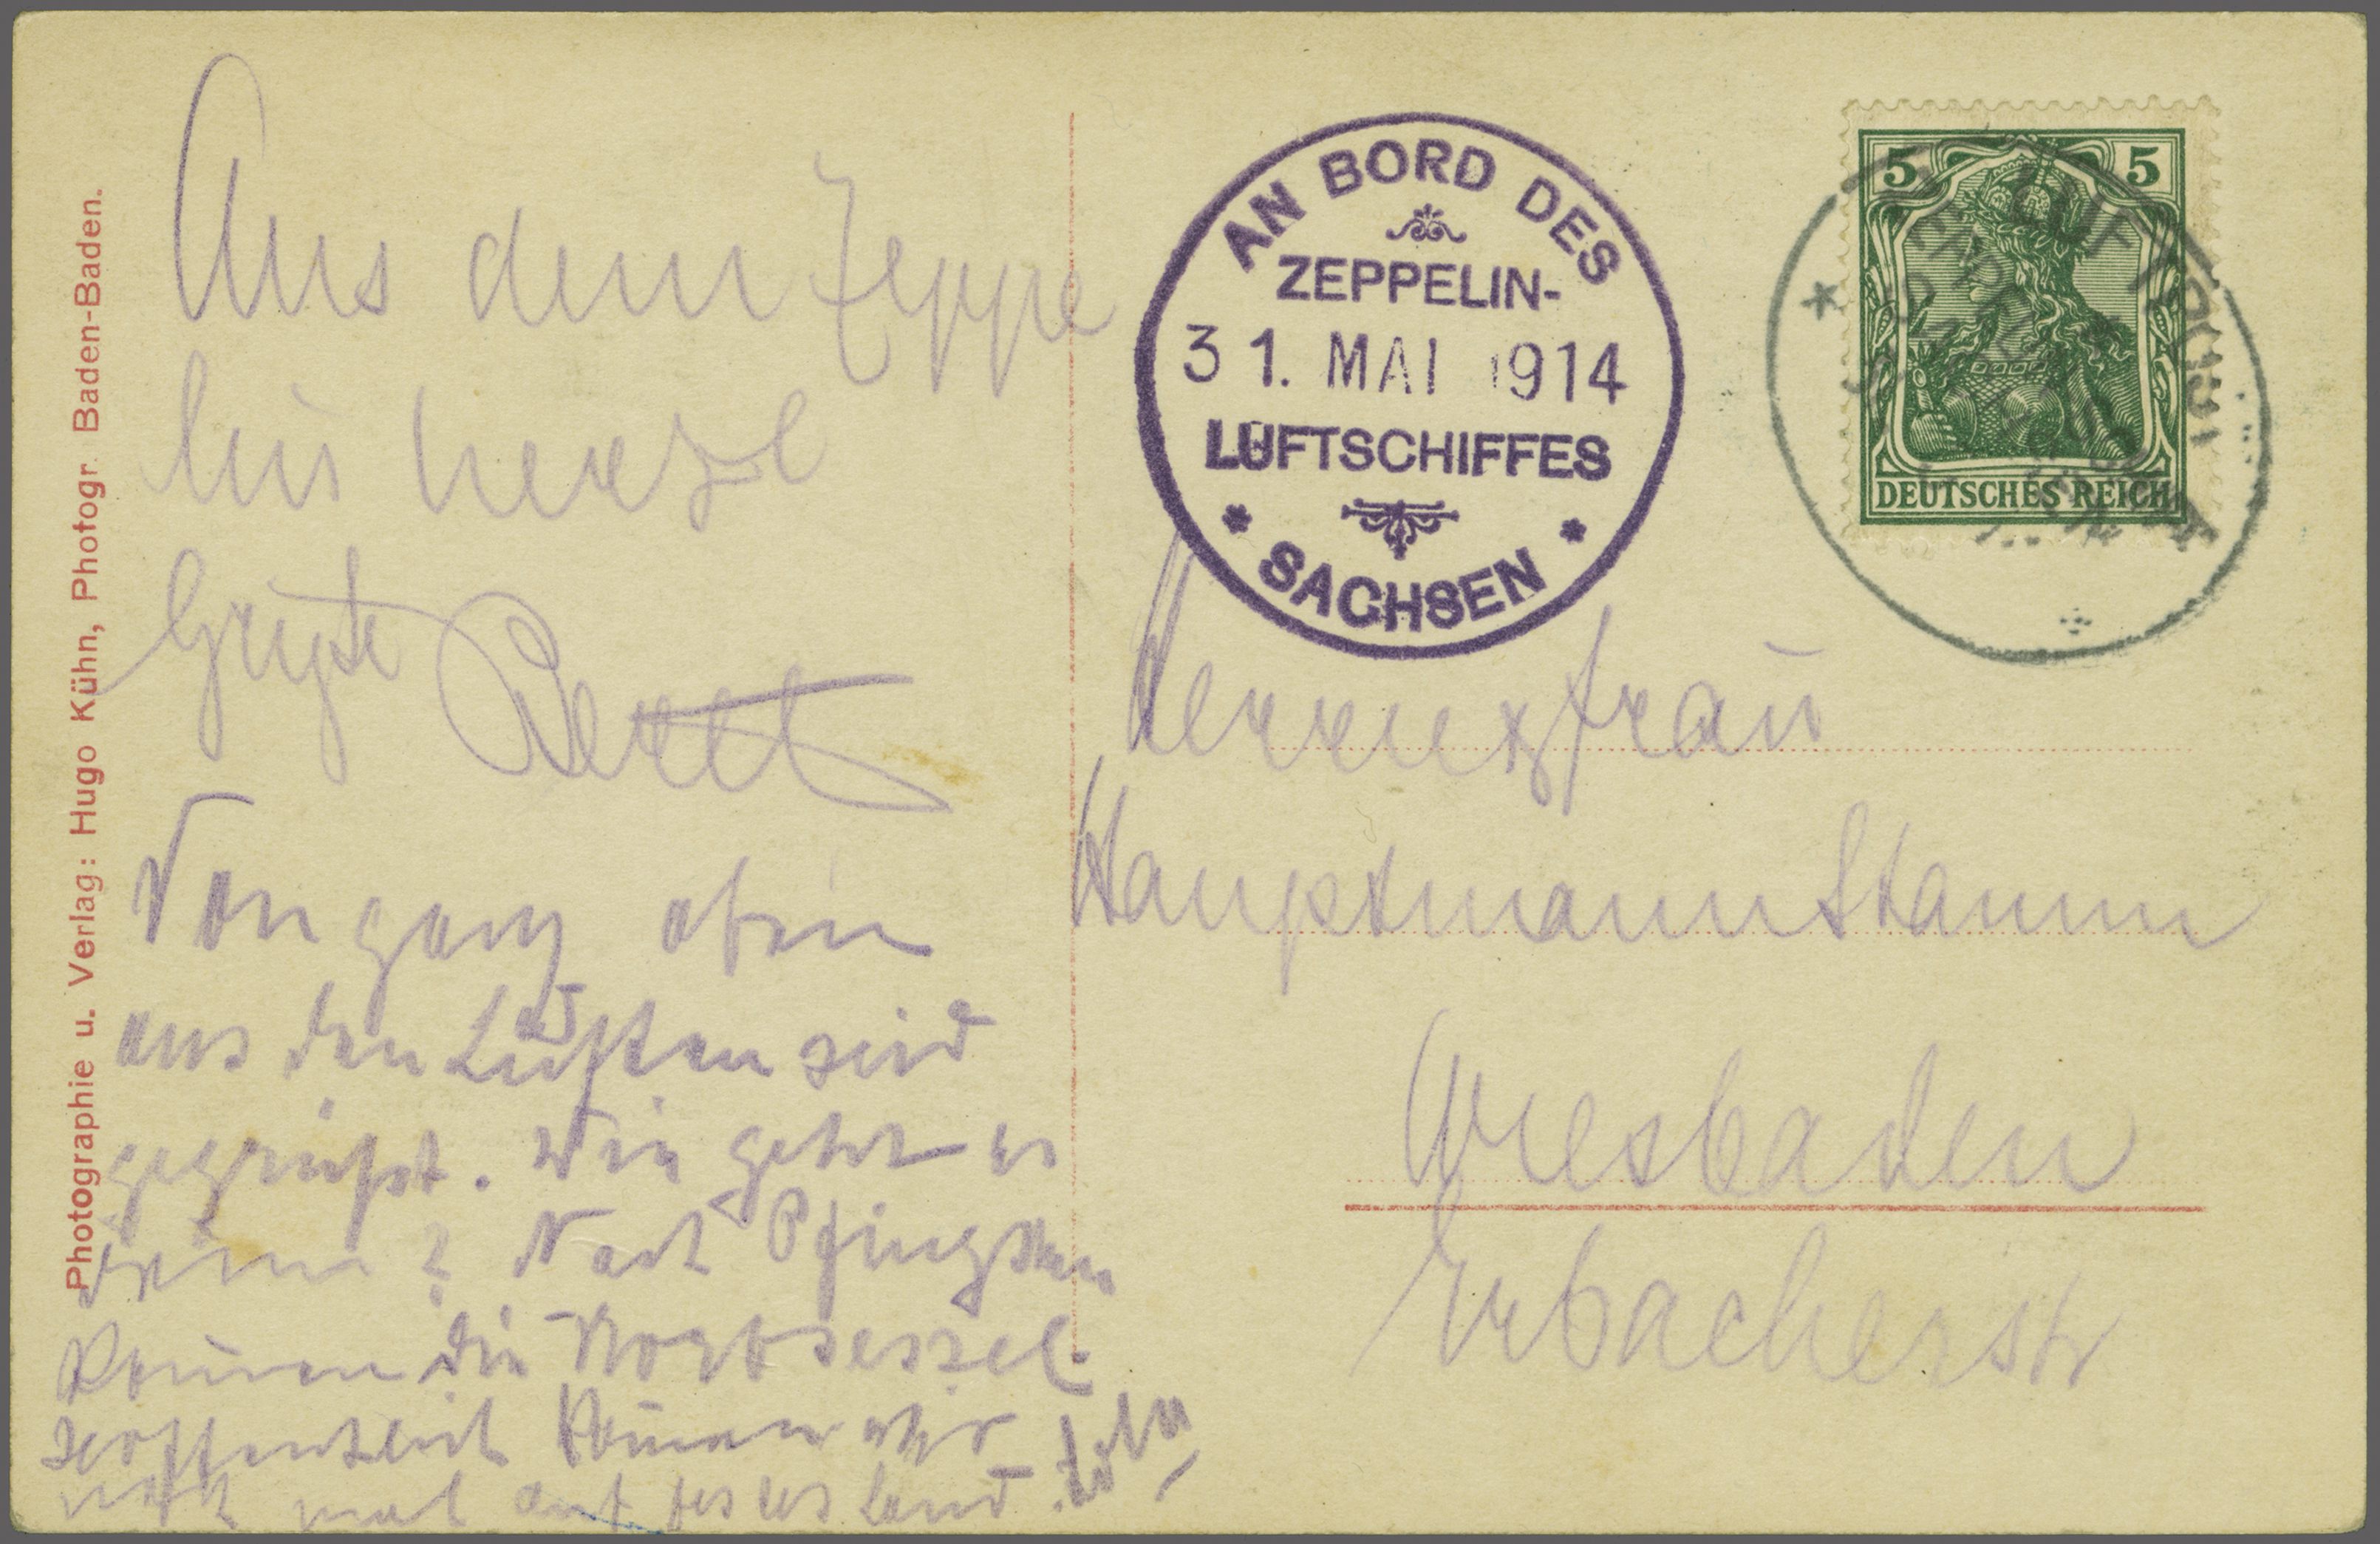 Aus dem Zeppe
lin herzl
Grüße
Von ganz oben
aus den Lüften seid
gegrüßt. Wie geht es
Nach Pfingsten
kommen die Korbsessel.
hoffentlich kommen wir
noch mal auf festes Land.
Photographie u. Verlag: Hugo Kühn, Photogr. Baden-Baden.
AN BORD DES
ZEPPELIN-
31. MAI 1914
LUFTSCHIFFES
SACHSEN
5 5
DEUTSCHES REICH
Hauptmann Stamm
Wiesbaden
Erbacherstr